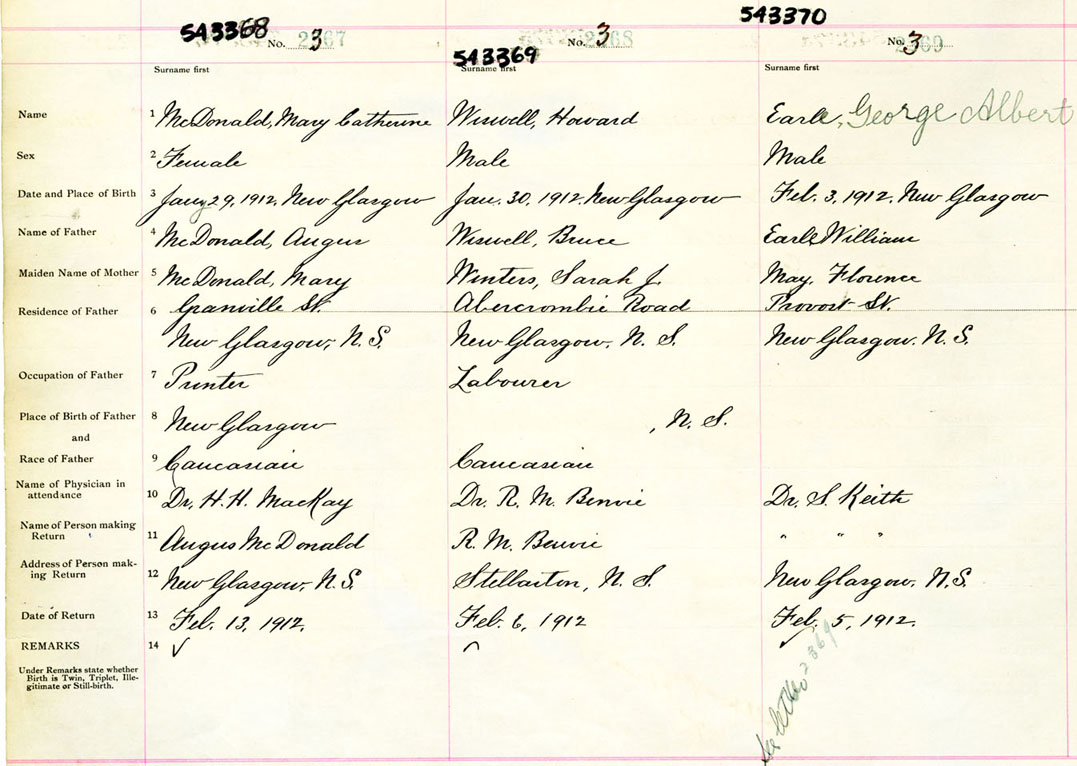 543368 543369 543370
No. 3 2367 No. 3 2368 No. 3 2369
Surname first Surname first Surname first
Name 1 McDonald, Mary Catherine Wiswell, Howard Earle, George Albert
Sex 2 Female Male Male
Date and Place of Birth 3 Jany 29, 1912, New Glasgow Jan. 30, 1912. New Glasgow Feb. 3, 1912. New Glasgow
Name of Father 4 McDonald, Angus Wiswell, Bruce Earle William
Maiden Name of Mother 5 McDonald, Mary Winters, Sarah J. May, Florence
Residence of Father 6 Granville St. Abercrombie Road Provost St.
New Glasgow, N.S. New Glasgow, N. S. New Glasgow, N.S.
Occupation of Father 7 Printer Labourer
Place of Birth of Father 8 New Glasgow , N. S.
and
Race of Father 9 Caucasian Caucasian
Name of Physician in
attendance 10 Dr. H. H. MacKay Dr. R. M. Benvie Dr. S. Keith
Name of Person making
Return 11 Angus McDonald R. M. Benvie " " "
Address of Person mak-
ing Return 12 New Glasgow, N.S. Stellarton, N. S. New Glasgow, N.S.
Date of Return 13 Feb. 13, 1912. Feb. 6, 1912 Feb. 5, 1912.
REMARKS 14 ✓
Under Remarks state whether
Birth is Twin, Triplet, Ille-
gitimate or Still-birth.
2369